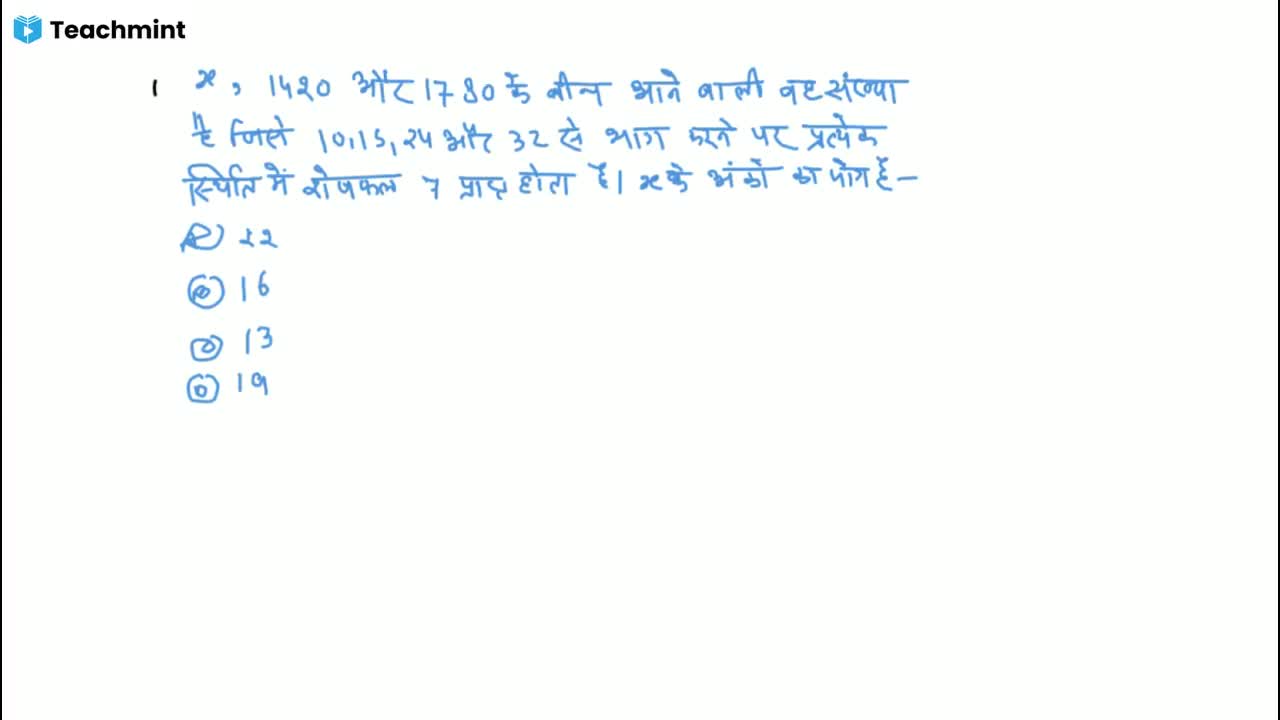 Teachmint
1 x, 1420 और 1780 के बीच आने वाली वह संख्या
है जिसे 10,15,24 और 32 से भाग करने पर प्रत्येक
स्थिति में शेषफल 7 प्राप्त होता है। x के अंकों का योग है –
22
16
13
19